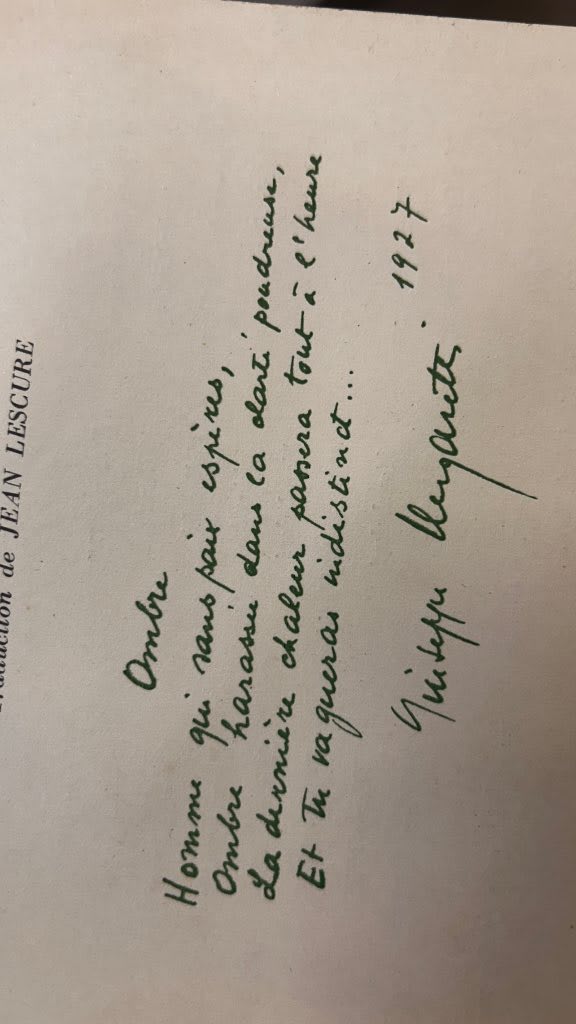 Traduction de JEAN LESCURE
Ombre
Homme qui sans paix espères,
Ombre harassée dans la clarté poudreuse,
La dernière chaleur passera tout à l'heure
Et Tu vagueras indistinct...
Giuseppe Ungaretti 1927